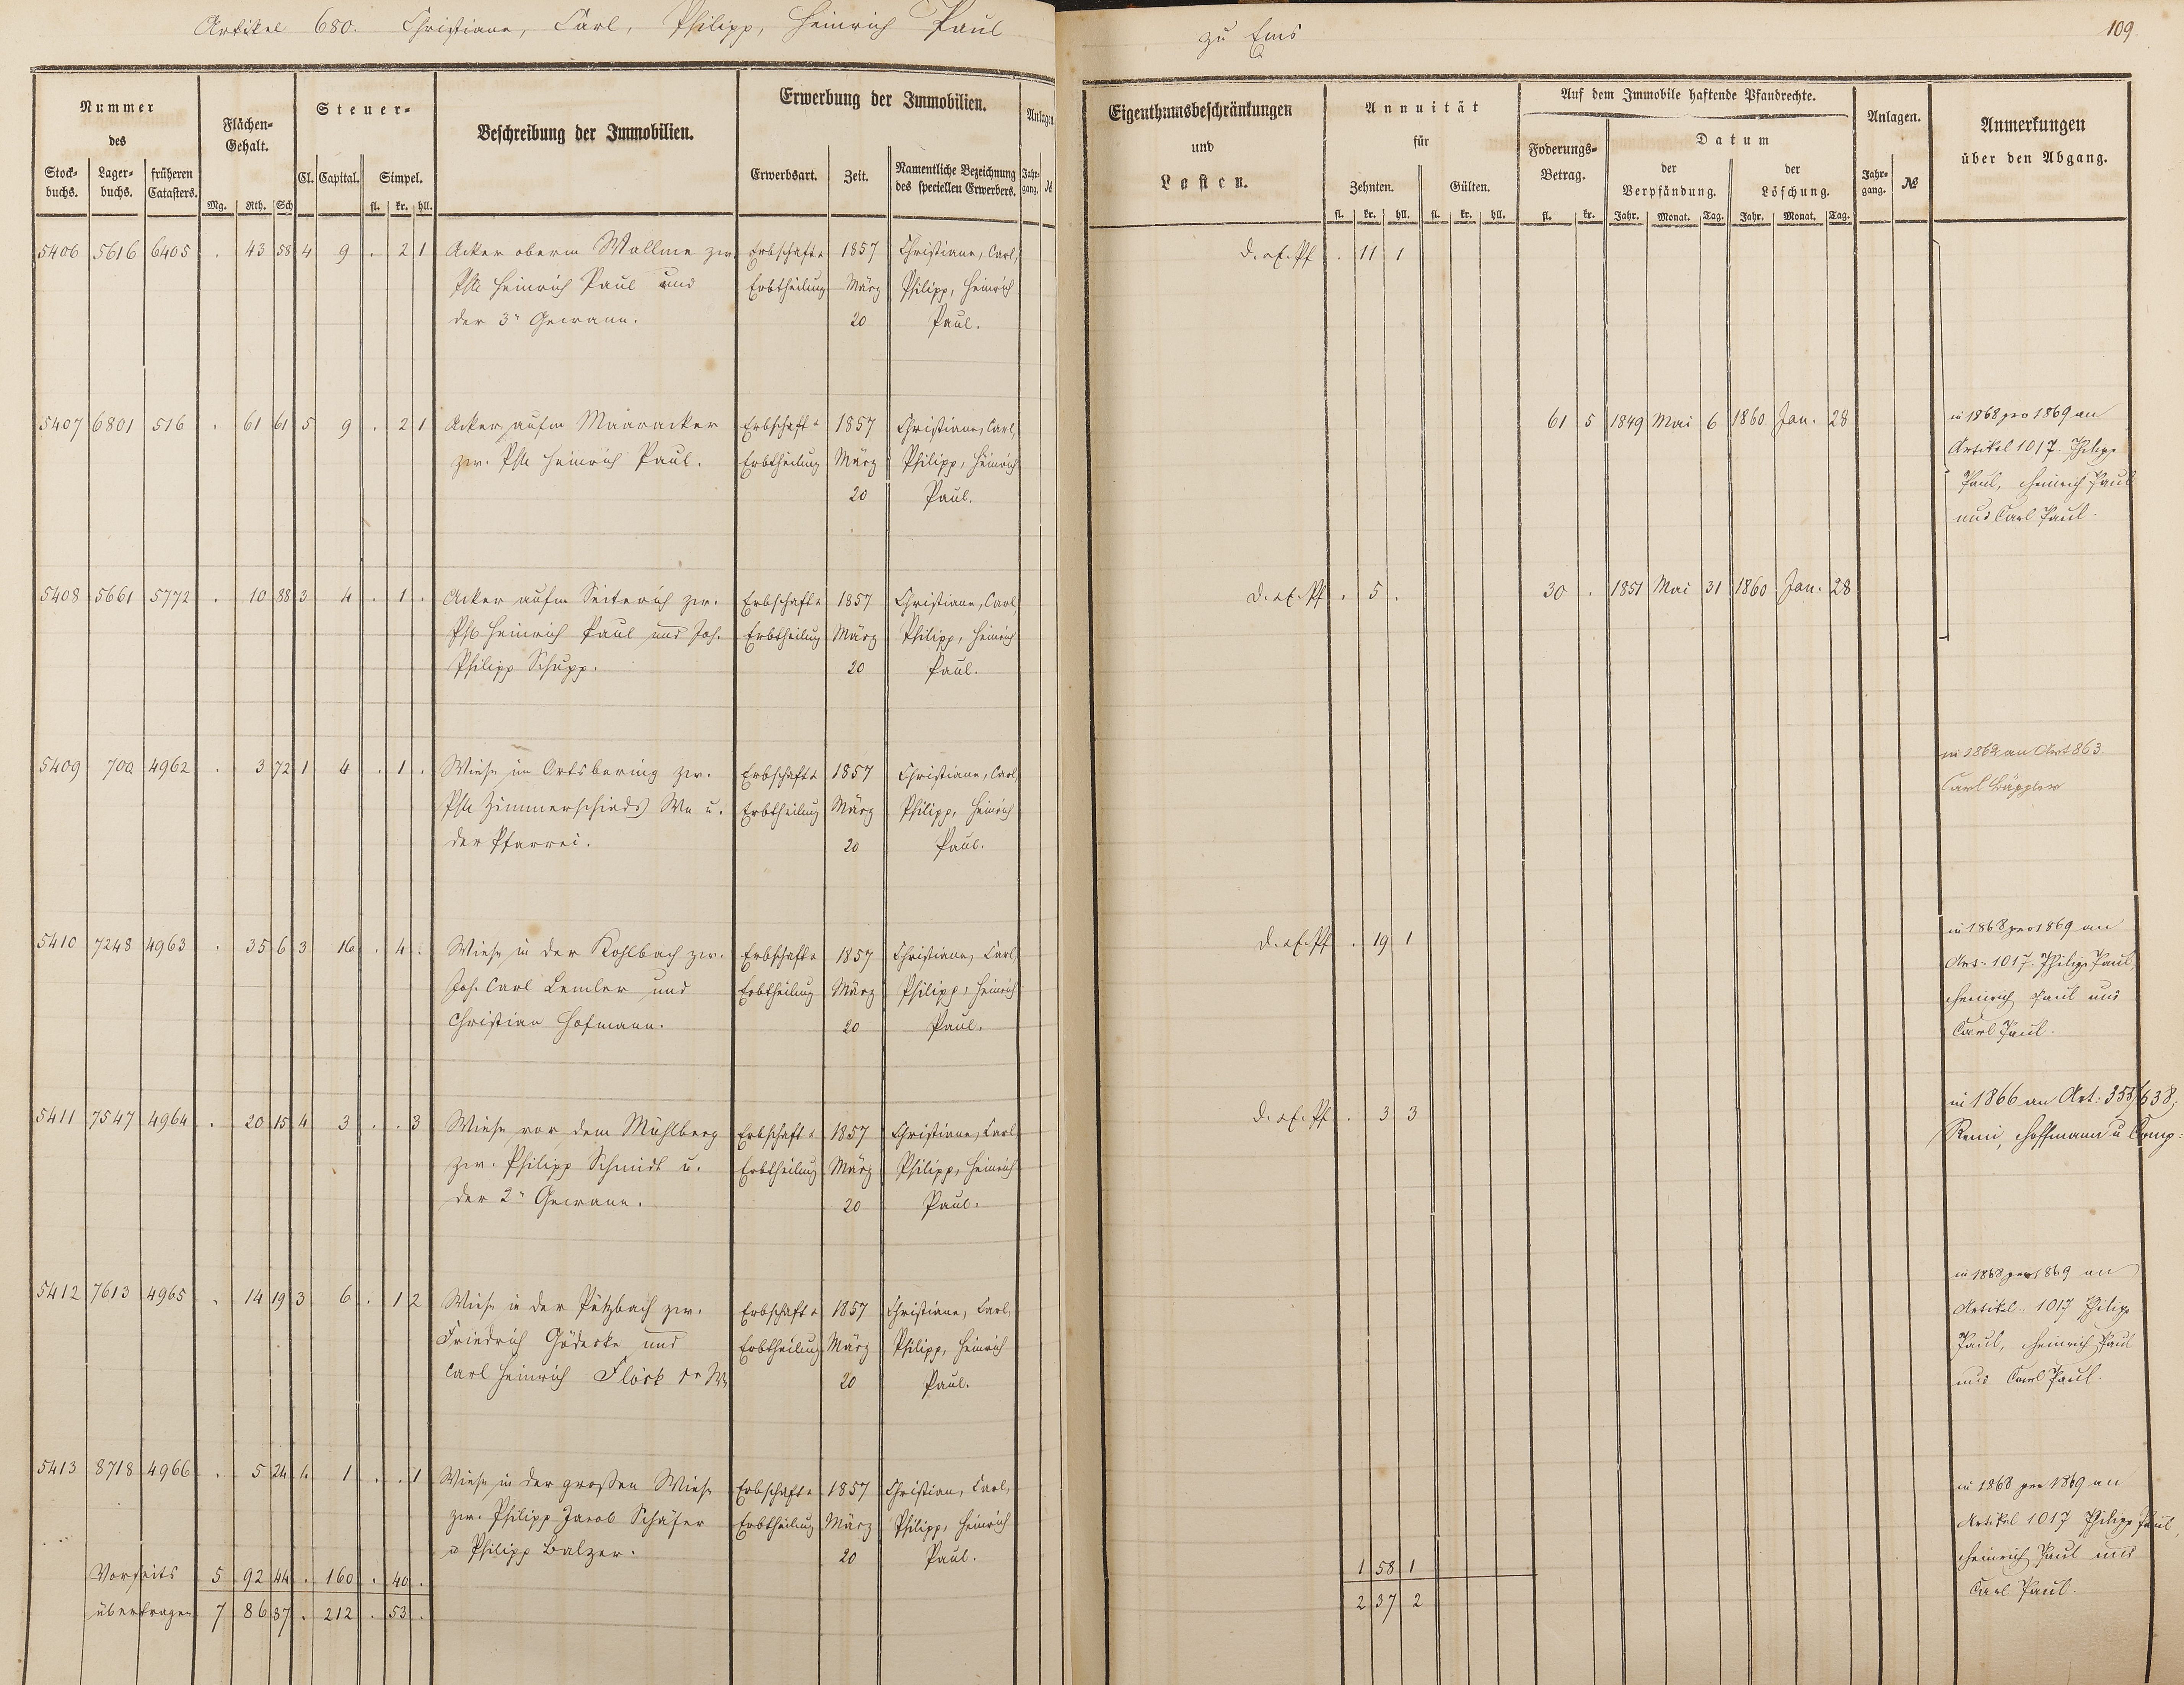 Artikel 680. Christiane, Carl, Philipp, Heinrich Paul
Nummer
des
Stock-
buchs.
Lager-
buchs.
früheren
Catasters.
Flächen-
Gehalt.
Mg. Rth. Sch
Steuer-
Cl. Capital. Simpel.
fl. kr. hll.
Beschreibung der Immobilien.
Erwerbung der Immobilien.
Erwerbsart. Zeit.
Namentliche Bezeichnung
des speciellen Erwerbers.
Anlagen.
Jahr-
gang. №
5406 5616 6405 . 43 58 4 9 . 2 1 Acker oberm Wallme zw. Erbschaft u 1857 Christiane, Carl,
Phl Heinrich Paul und Erbtheilung März Philipp, Heinrich
der 3n Gewann. 20 Paul.
5407 6801 516 . 61 61 5 9 . 2 1 Acker aufm Maaracker Erbschaft u 1857 Christiane, Carl,
zw. Phl Heinrich Paul. Erbtheilung März Philipp, Heinrich
20 Paul.
5408 5661 5772 . 10 88 3 4 . 1 . Acker aufm Seiterich zw. Erbschaft u 1857 Christiane, Carl,
Phl Heinrich Paul und Joh. Erbtheilung März Philipp, Heinrich
Philipp Schupp. 20 Paul.
5409 700 4962 . 3 72 1 4 . 1 . Wiese im Ortsbering zw. Erbschaft u 1857 Christiane, Carl
Phl Zimmerschieds We u. Erbtheilung März Philipp, Heinrich
der Pfarrei. 20 Paul.
5410 7248 4963 . 35 6 3 16 . 4 . Wiese in der Kohlbach zw. Erbschaft u 1857 Christiane, Carl,
Joh. Carl Lemler und Erbtheilung März Philipp, Heinrich
Christian Hofmann. 20 Paul.
5411 7547 4964 . 20 15 4 3 . . 3 Wiese vor dem Mühlberg Erbschaft u 1857 Christiane, Carl
zw. Philipp Schmidt u. Erbtheilung März Philipp, Heinrich
der 2n Gewann. 20 Paul.
5412 7613 4965 . 14 19 3 6 . 1 2 Wiese in der Pützbach zw. Erbschaft u 1857 Christiane, Carl,
Friedrich Gödecke und Erbtheilung März Philipp, Heinrich
Carl Heinrich Flöck 20 Paul.
5413 8718 4966 . 5 24 4 1 . . 1 Wiese in der großen Wiese Erbschaft u 1857 Christian, Carl,
zw. Philipp Jacob Schäfer Erbtheilung März Philipp, Heinrich
u Philipp Balzer. 20 Paul.
Vorseits 5 92 44 . 160 . 40 .
übertragen 7 86 87 . 212 . 53 .
zu Ems
109.
Eigenthumsbeschränkungen
und
Lasten.
Annuität
für
Zehnten. Gülten.
fl. kr. hll. fl. kr. hll.
Auf dem Immobile haftende Pfandrechte.
Foderungs-
Betrag.
fl. kr.
Datum
der
Verpfändung.
der
Löschung.
Jahr. Monat. Tag. Jahr. Monat. Tag.
Anlagen.
Jahr-
gang. №
Anmerkungen
über den Abgang.
. 11 1
61 5 1849 Mai 6 1860 Jan. 28 in 1868 pro 1869 an
Artikel 1017 Philipp
Paul, Heinrich Paul
und Carl Paul.
. 5 . 30 . 1851 Mai 31 1860 Jan. 28
in 1862 an Art 863.
Carl Bäppler
. 19 1 in 1868 pro 1869 an
Art. 1017 Philipp Paul,
Heinrich Paul und
Carl Paul.
. 3 3 in 1866 an Art: 353/638,
Remi, Hoffmann u Comp:
in 1868 pro 1869 an
Artikel 1017 Philipp
Paul, Heinrich Paul
und Carl Paul.
in 1868 pro 1869 an
Artikel 1017 Philipp Paul,
Heinrich Paul und
Carl Paul.
1 58 1
2 37 2